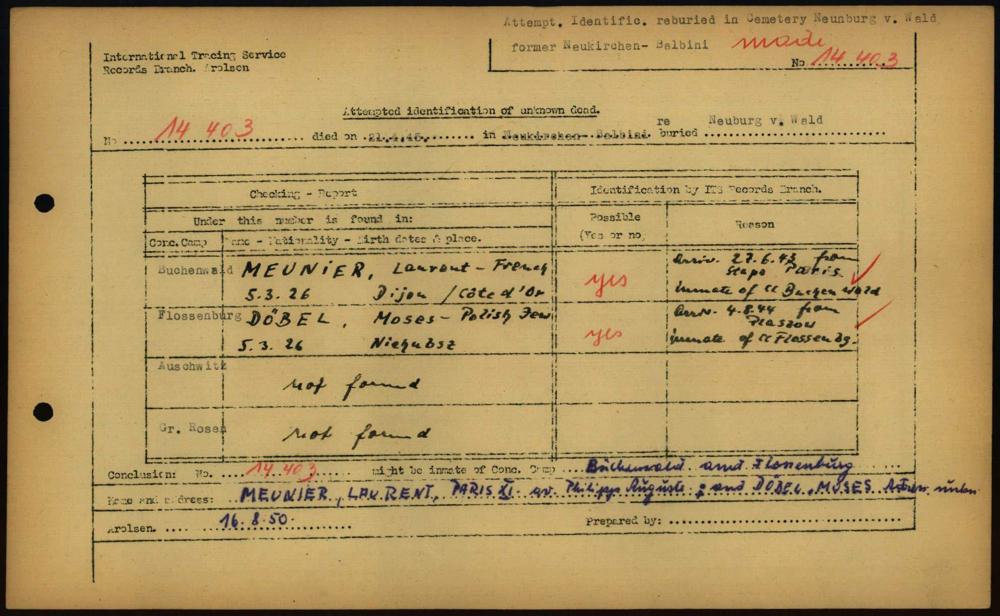 Attempt. Identific. reburied in Cemetery Neunburg v. Wald
former Neukirchen- Balbini made
No 14 403
International Tracing Service
Records Branch. Arolsen
Attempted identification of unknown dead.
No 14 403 died on 21.4.45. in Neukirchen- Balbini re buried Neuburg v. Wald
Checking - Report
Identification by ITS Records Branch.
Under this number is found in:
Possible (Yes or no)
Reason
Conc.Camp
Name - Nationality - Birth dates & place.
Buchenwald
MEUNIER, Laurent - French
5.3.26 Dijon / Côte d'Or
yes
Arriv. 27.6.43 from
Stapo Paris
inmate of CC Buchenwald
Flossenburg
DÖBEL, Moses - Polish Jew
5.3.26
yes
Arriv. 4.8.44 from
Plaszow
inmate of CC Flossenbg.
Auschwitz
not found
Gr. Rosen
not found
Conclusion: No. 14.403 might be inmate of Conc. Camp Buchenwald and Flossenburg
Name and address: MEUNIER, LAURENT, PARIS XI av. Philipp Auguste; and DÖBEL, MOSES
Arolsen. 16.8.50. Prepared by: